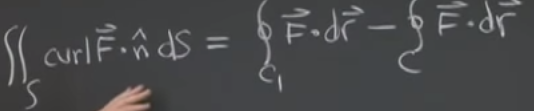 ∬_S curl F⃗ · n̂ dS = ∮_{C₁} F⃗ · dr⃗ − ∮_C F⃗ · dr⃗